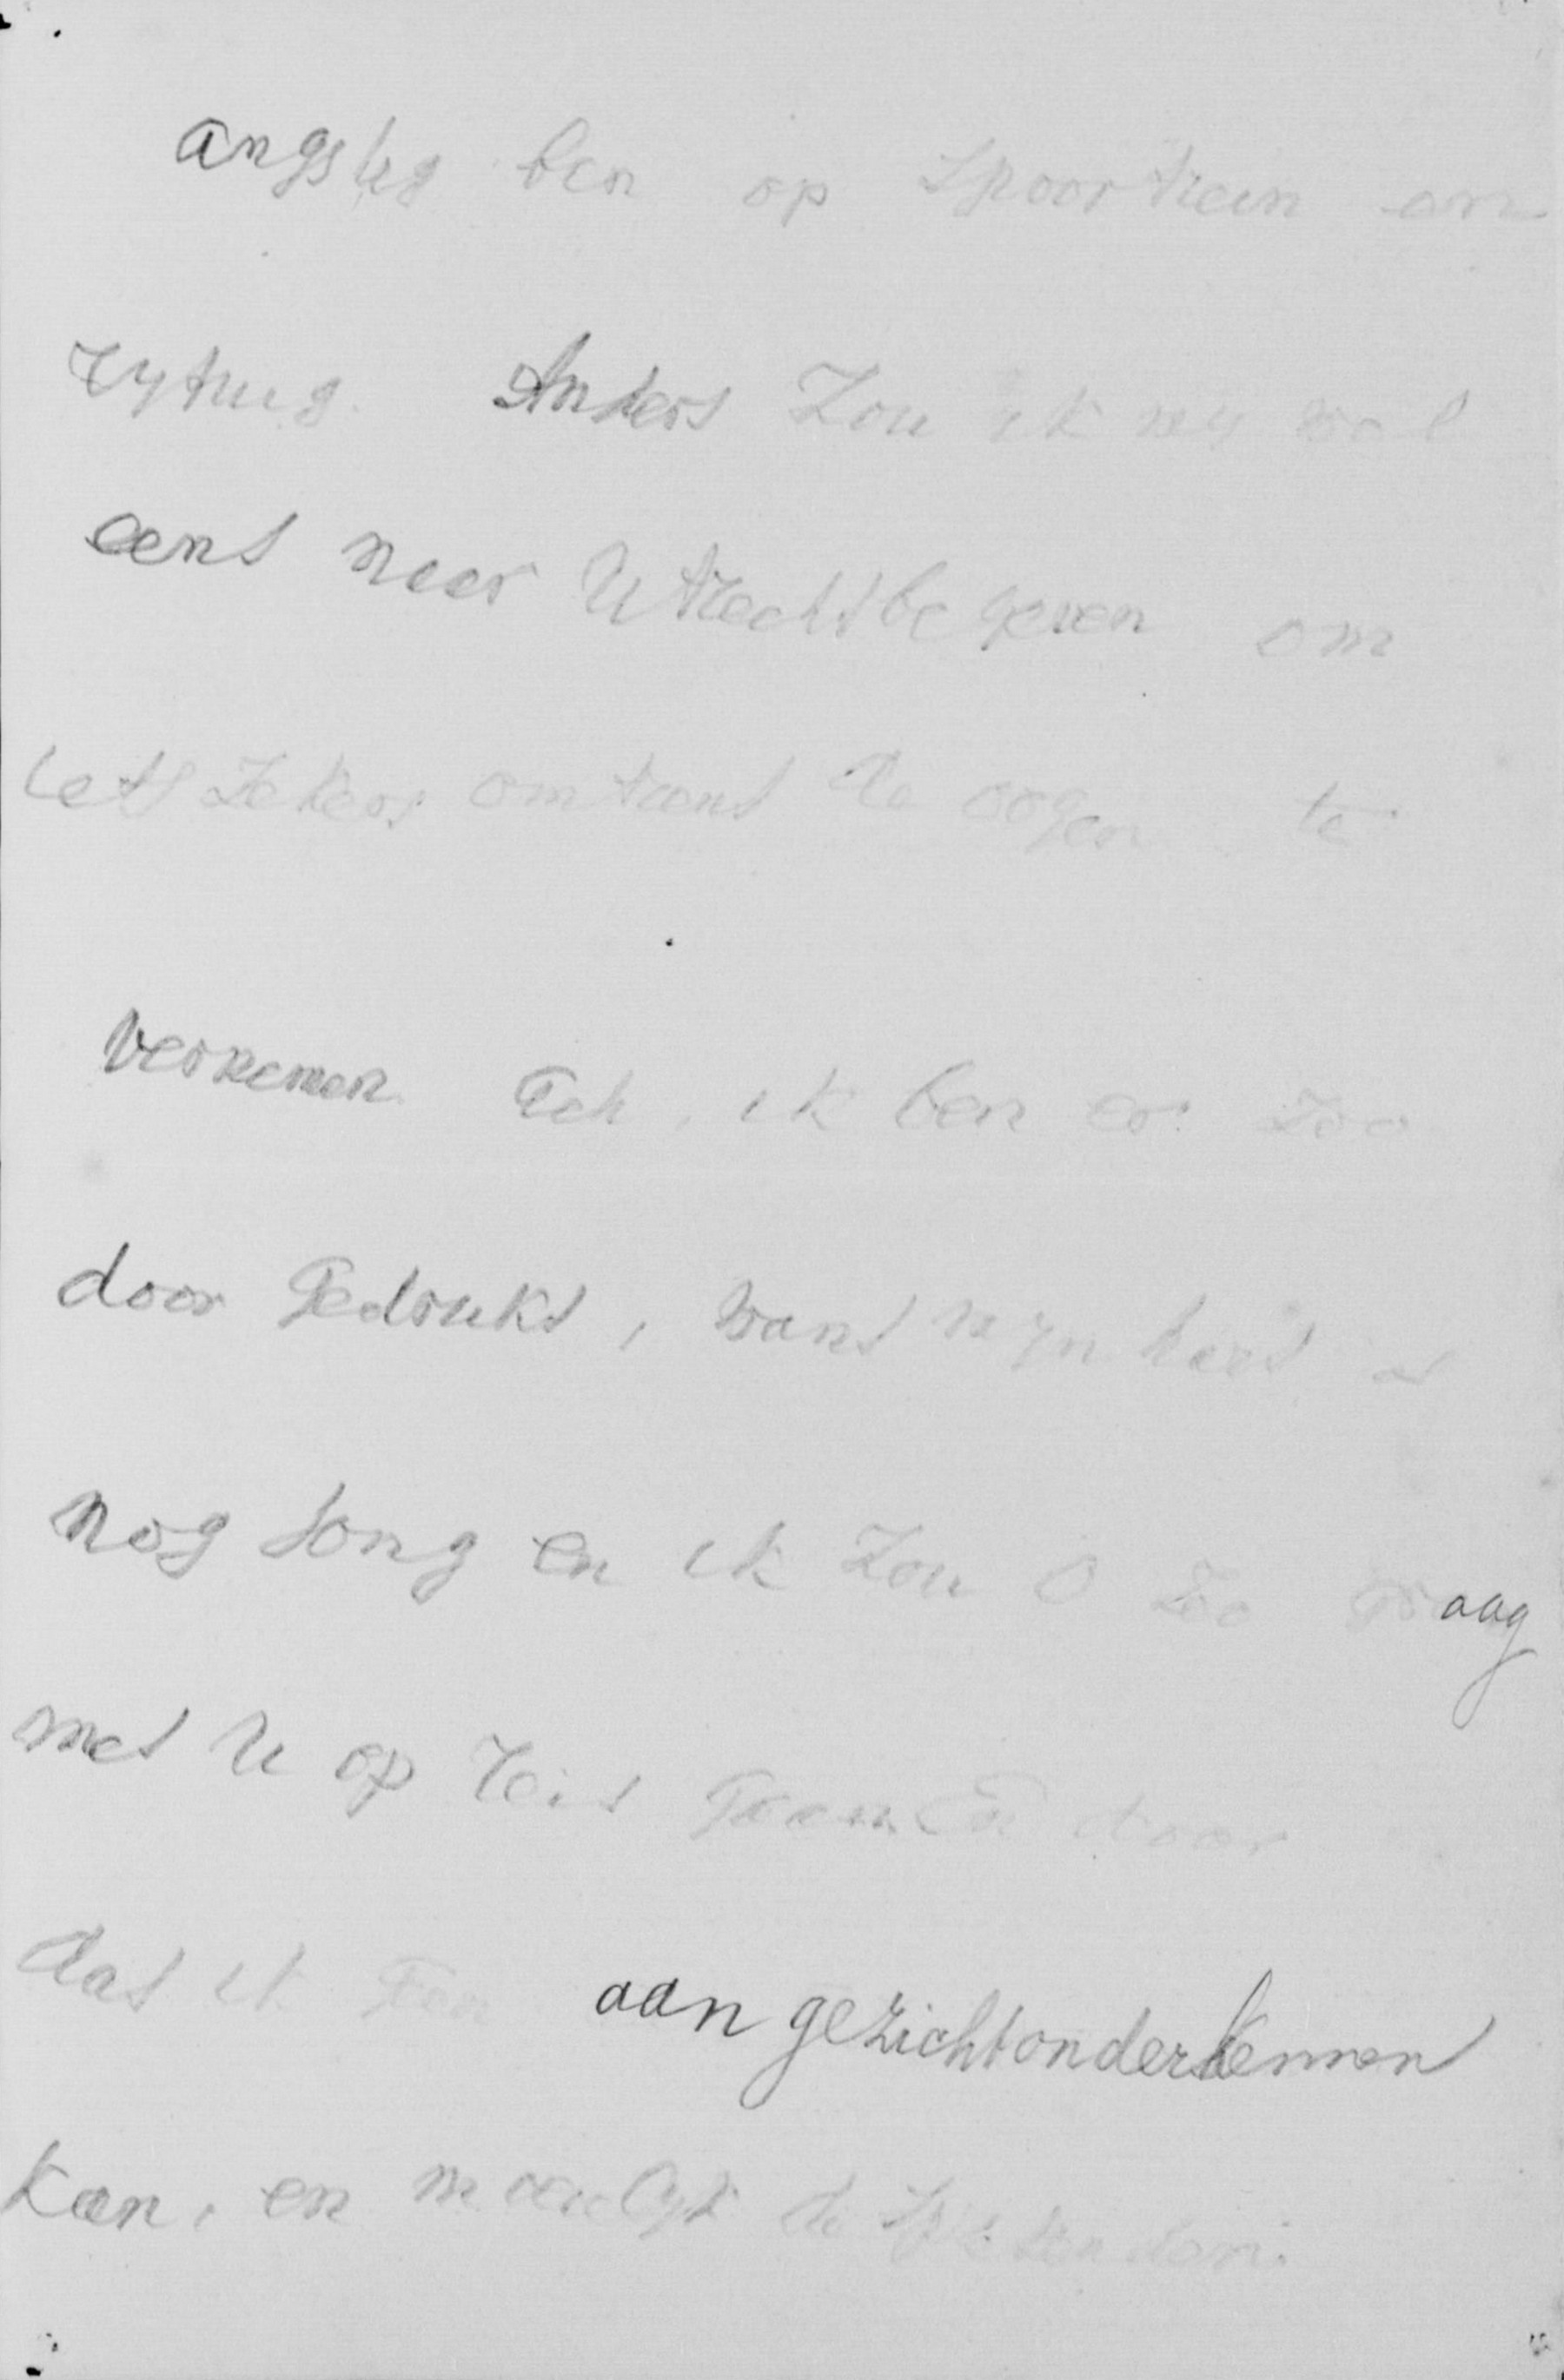 angstig ben op spoortrein en
rytuig. Anders Zou ik my wel
eens naar Utrecht begeven om
iets Zekers omtrent de oogen te
vernemen. Ach, ik ben er zoo
door Gedrukt, want myn hart is
nog Jong en ik Zou O zoo graag
met U op reis Gaan En door
dat ik Een aangezicht onderkennen
kan, en moeilyk de